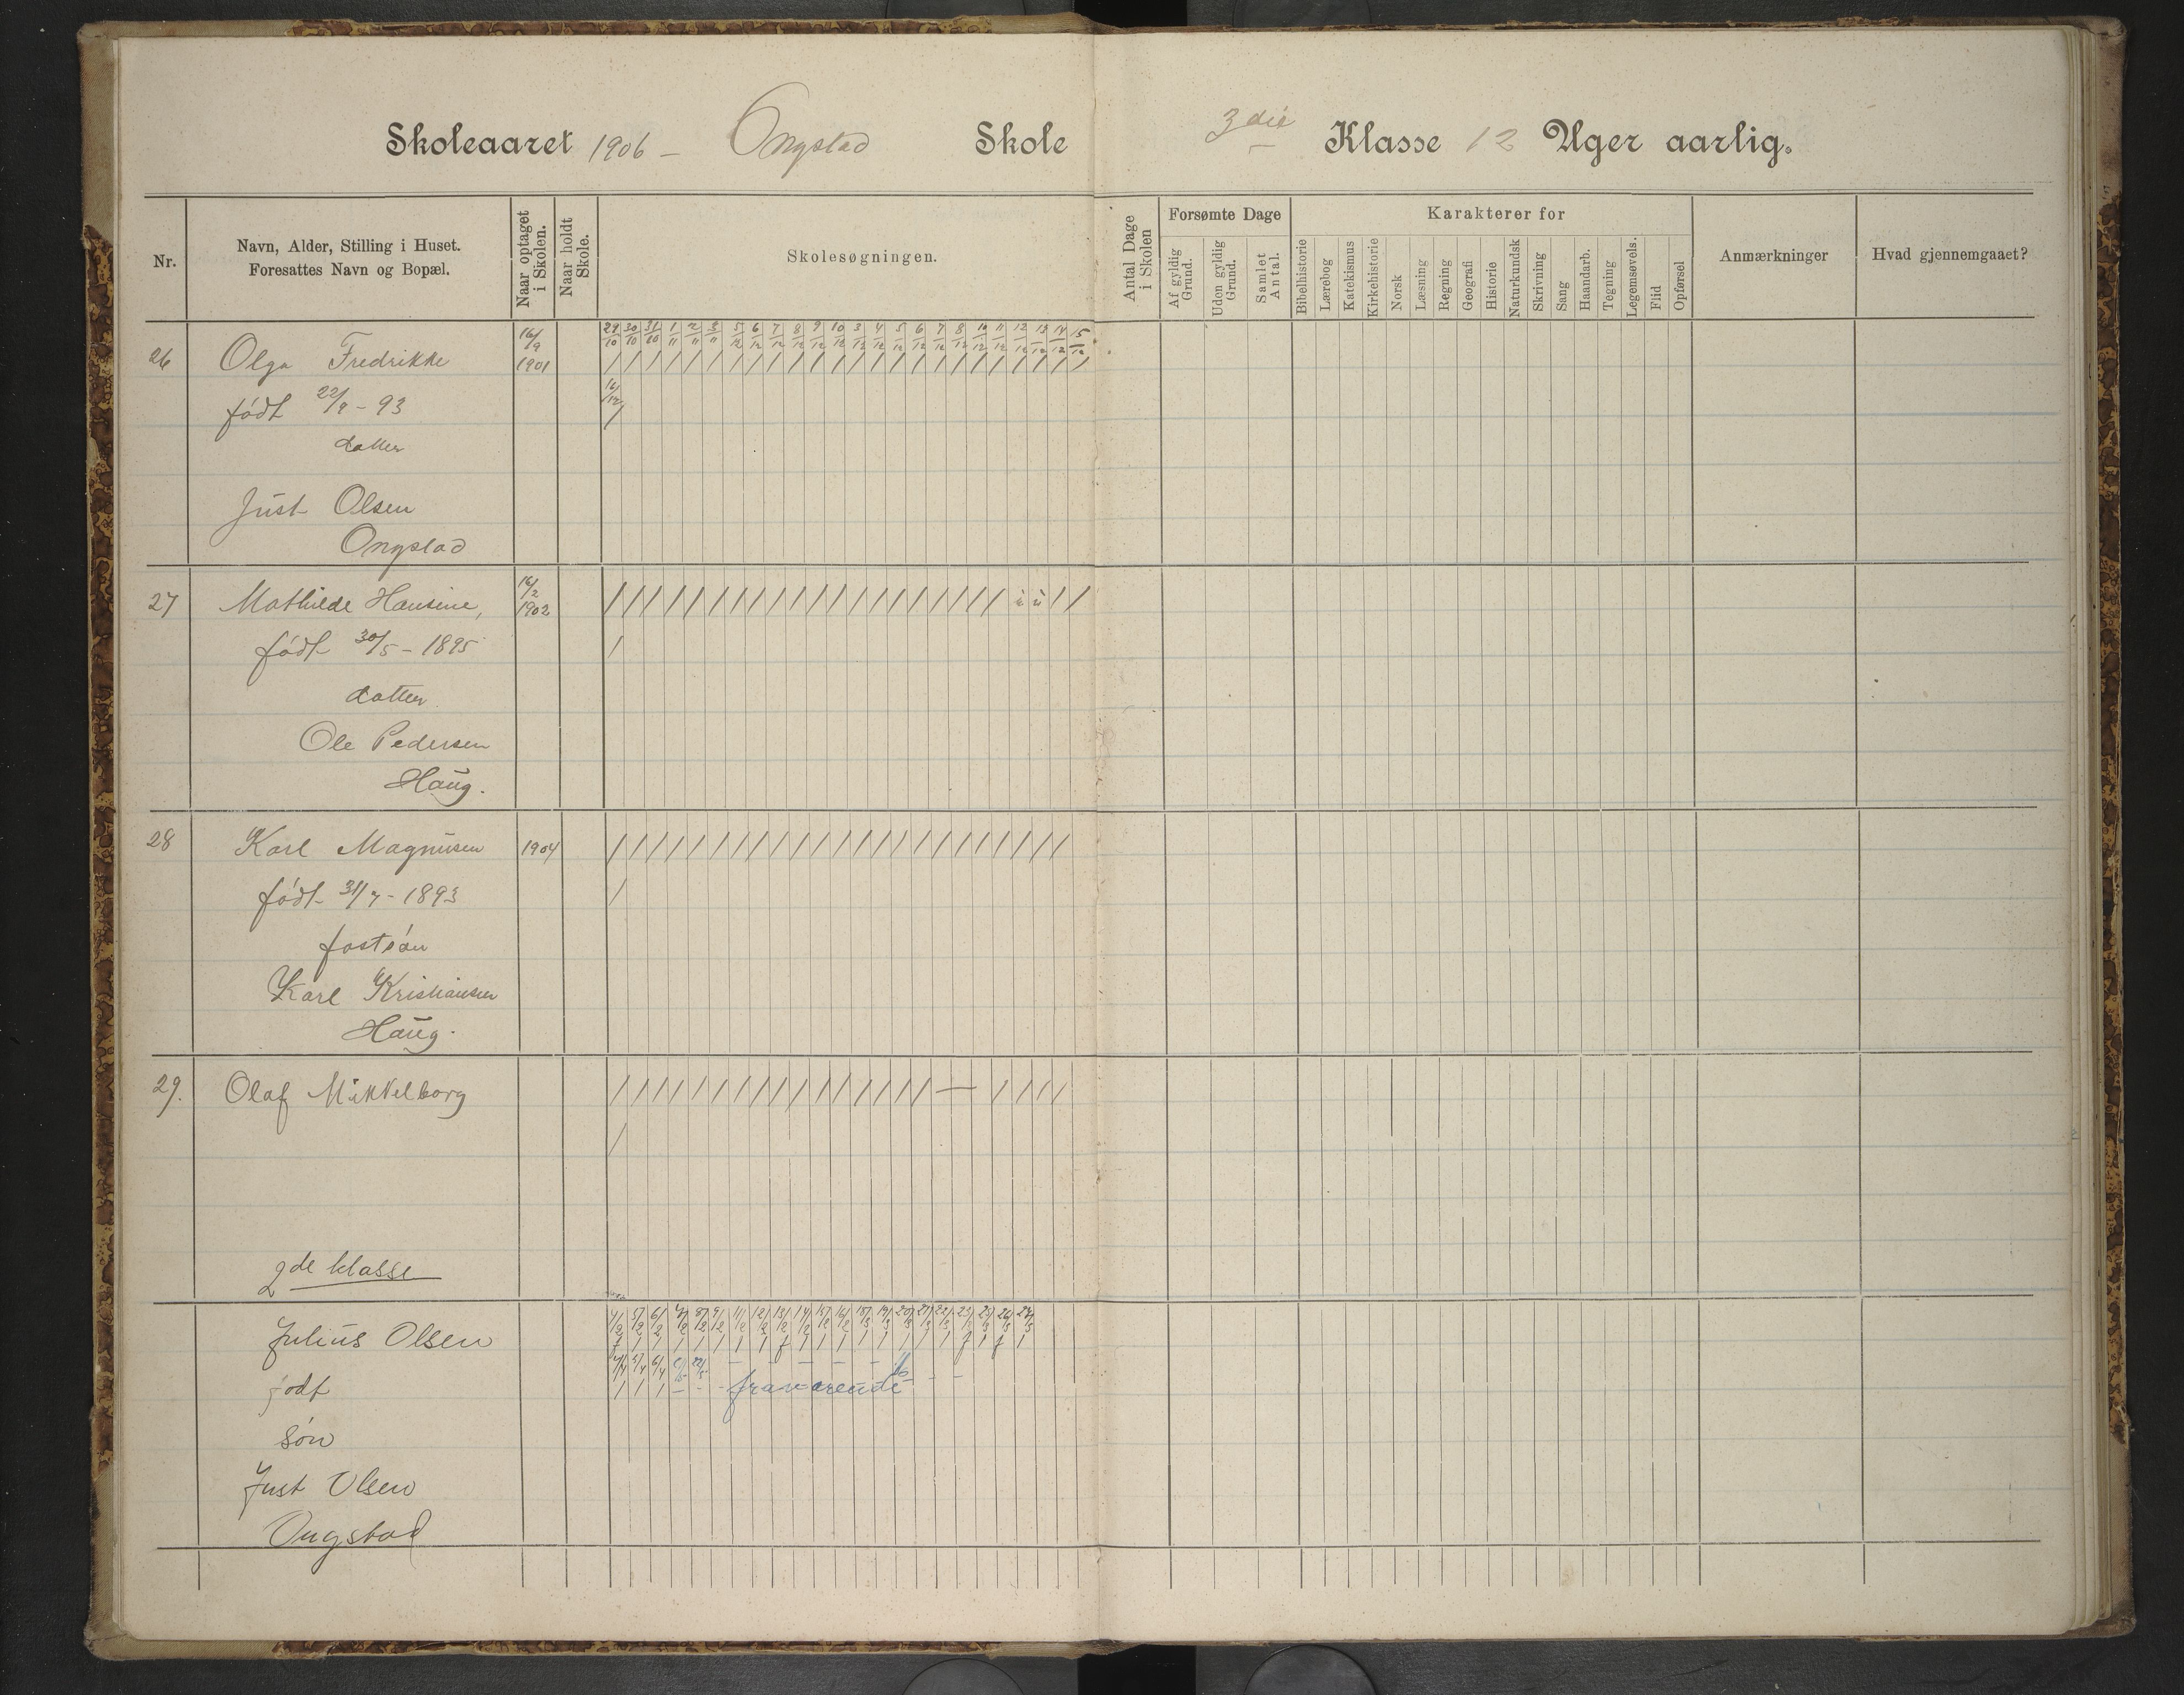 Skoleaaret 1906 – Ongstad Skole 3die Klasse 12 Uger aarlig.
Nr.
Navn, Alder, Stilling i Huset.
Foresattes Navn og Bopæl.
Naar optaget
i Skolen.
Naar holdt
Skole.
Skolesøgningen.
Antal Dage
i Skolen
Forsømte Dage
Af gyldig
Grund.
Uden gyldig
Grund.
Samlet
Antal.
Karakterer for
Bibelhistorie
Lærebog
Katekismus
Kirkehistorie
Norsk
Læsning
Regning
Geografi
Historie
Naturkundsk
Skrivning
Sang
Haandarb.
Tegning
Legemsøvels.
Flid
Opførsel
Anmærkninger
Hvad gjennemgaaet?
29/10 30/10 31/10 1/11 2/11 3/11 5/12 6/12 7/12 8/12 9/12 10/12 3/12 4/12 5/12 6/12 7/12 8/12 10/12 11/12 12/12 13/12 14/12 15/12
26 Olga Fredrikke 16/9 1901 / / / / / / / / / / / / / / / / / / / / / / / /
født 22/9 - 93 16/12 /
datter
Just Olsen
Ongstad
27 Mathilde Hansine, 16/2 1902 / / / / / / / / / / / / / / / / / / / / u u / /
født 30/5 - 1895 /
datter
Ole Pedersen
Haug.
28 Karl Magnusen 1904 / / / / / / / / / / / / / / / / / / / / / / /
født 31/7 - 1893 /
fostsøn
Karl Kristiansen
Haug.
29. Olaf Mikkelborg / / / / / / / / / / / / / / / / — / / / /
/
2de klasse
Julius Olsen
født
fraværende
søn
Just Olsen
Ongstad